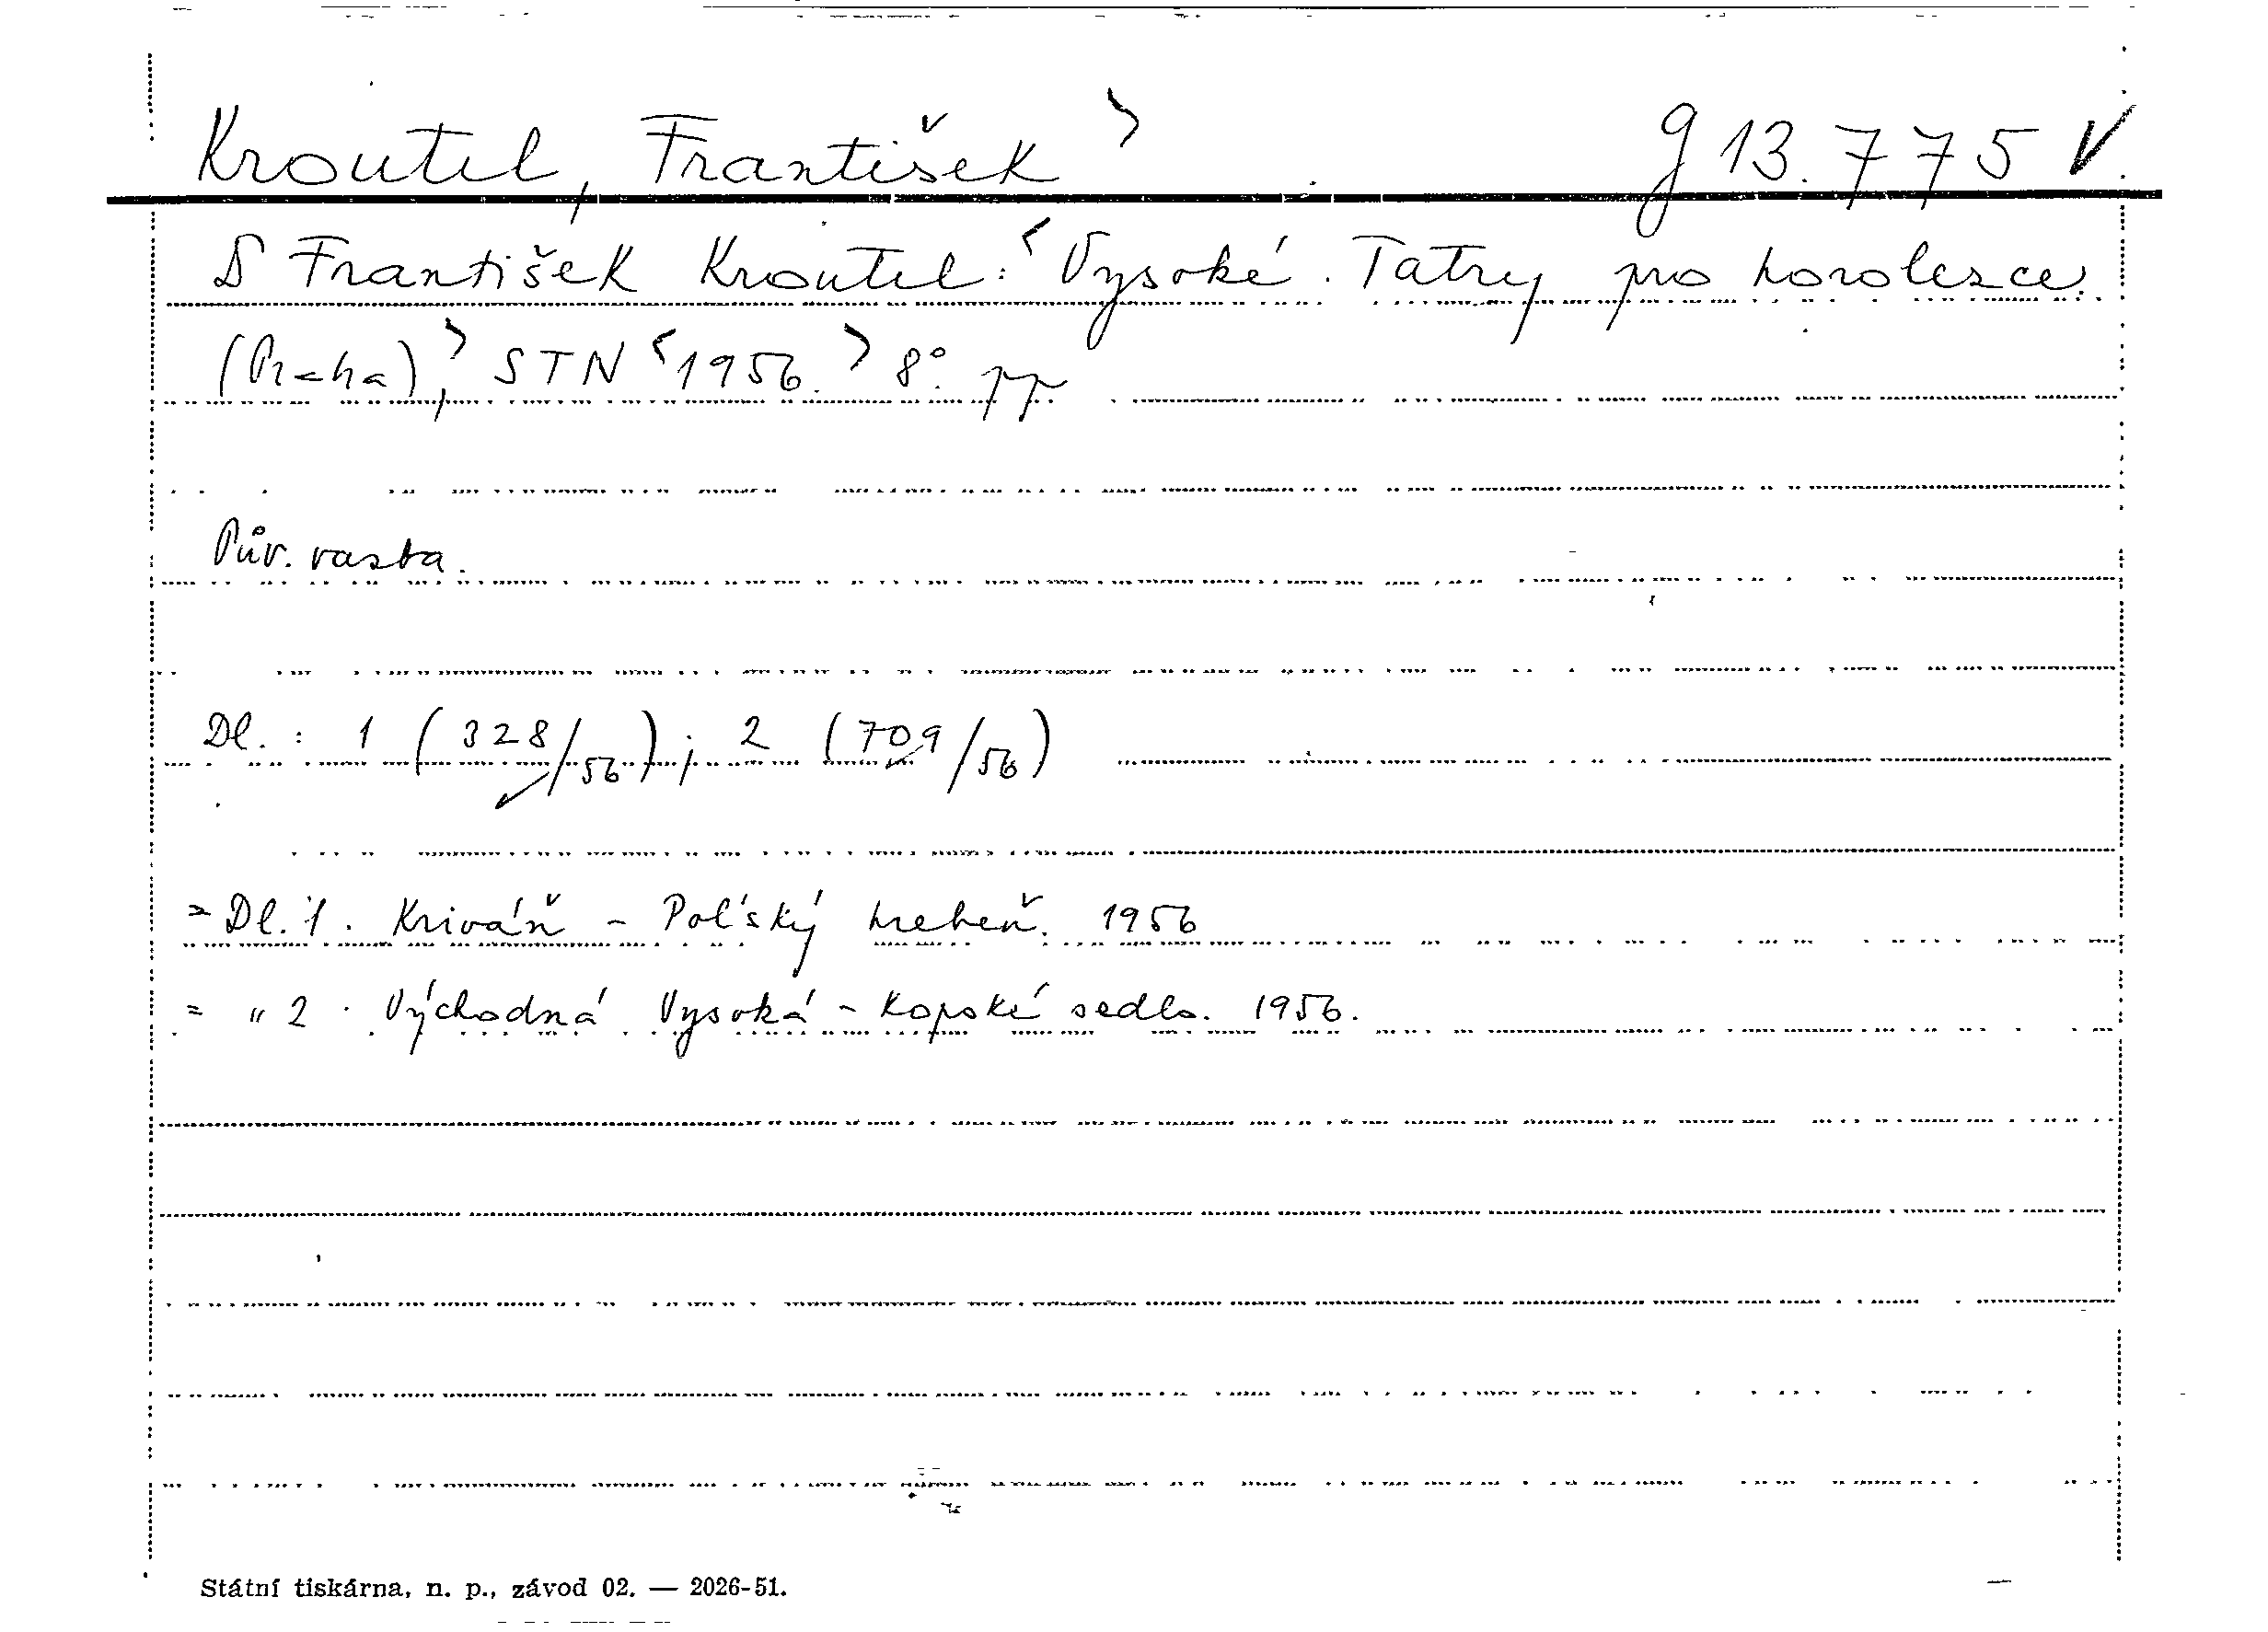 Kroutil, František > g 13.775 V
S František Kroutil: < Vysoké Tatry pro horolezce.
(Praha), > STN < 1956. > 8°. pp.
Pův. vazba.
Dl. : 1 (328/56) ; 2 (709/56)
= Dl. 1. Kriváň - Poľský hrebeň. 1956
= " 2. Východná Vysoká - Kopské sedlo. 1956.
Státní tiskárna, n. p., závod 02. — 2026-51.